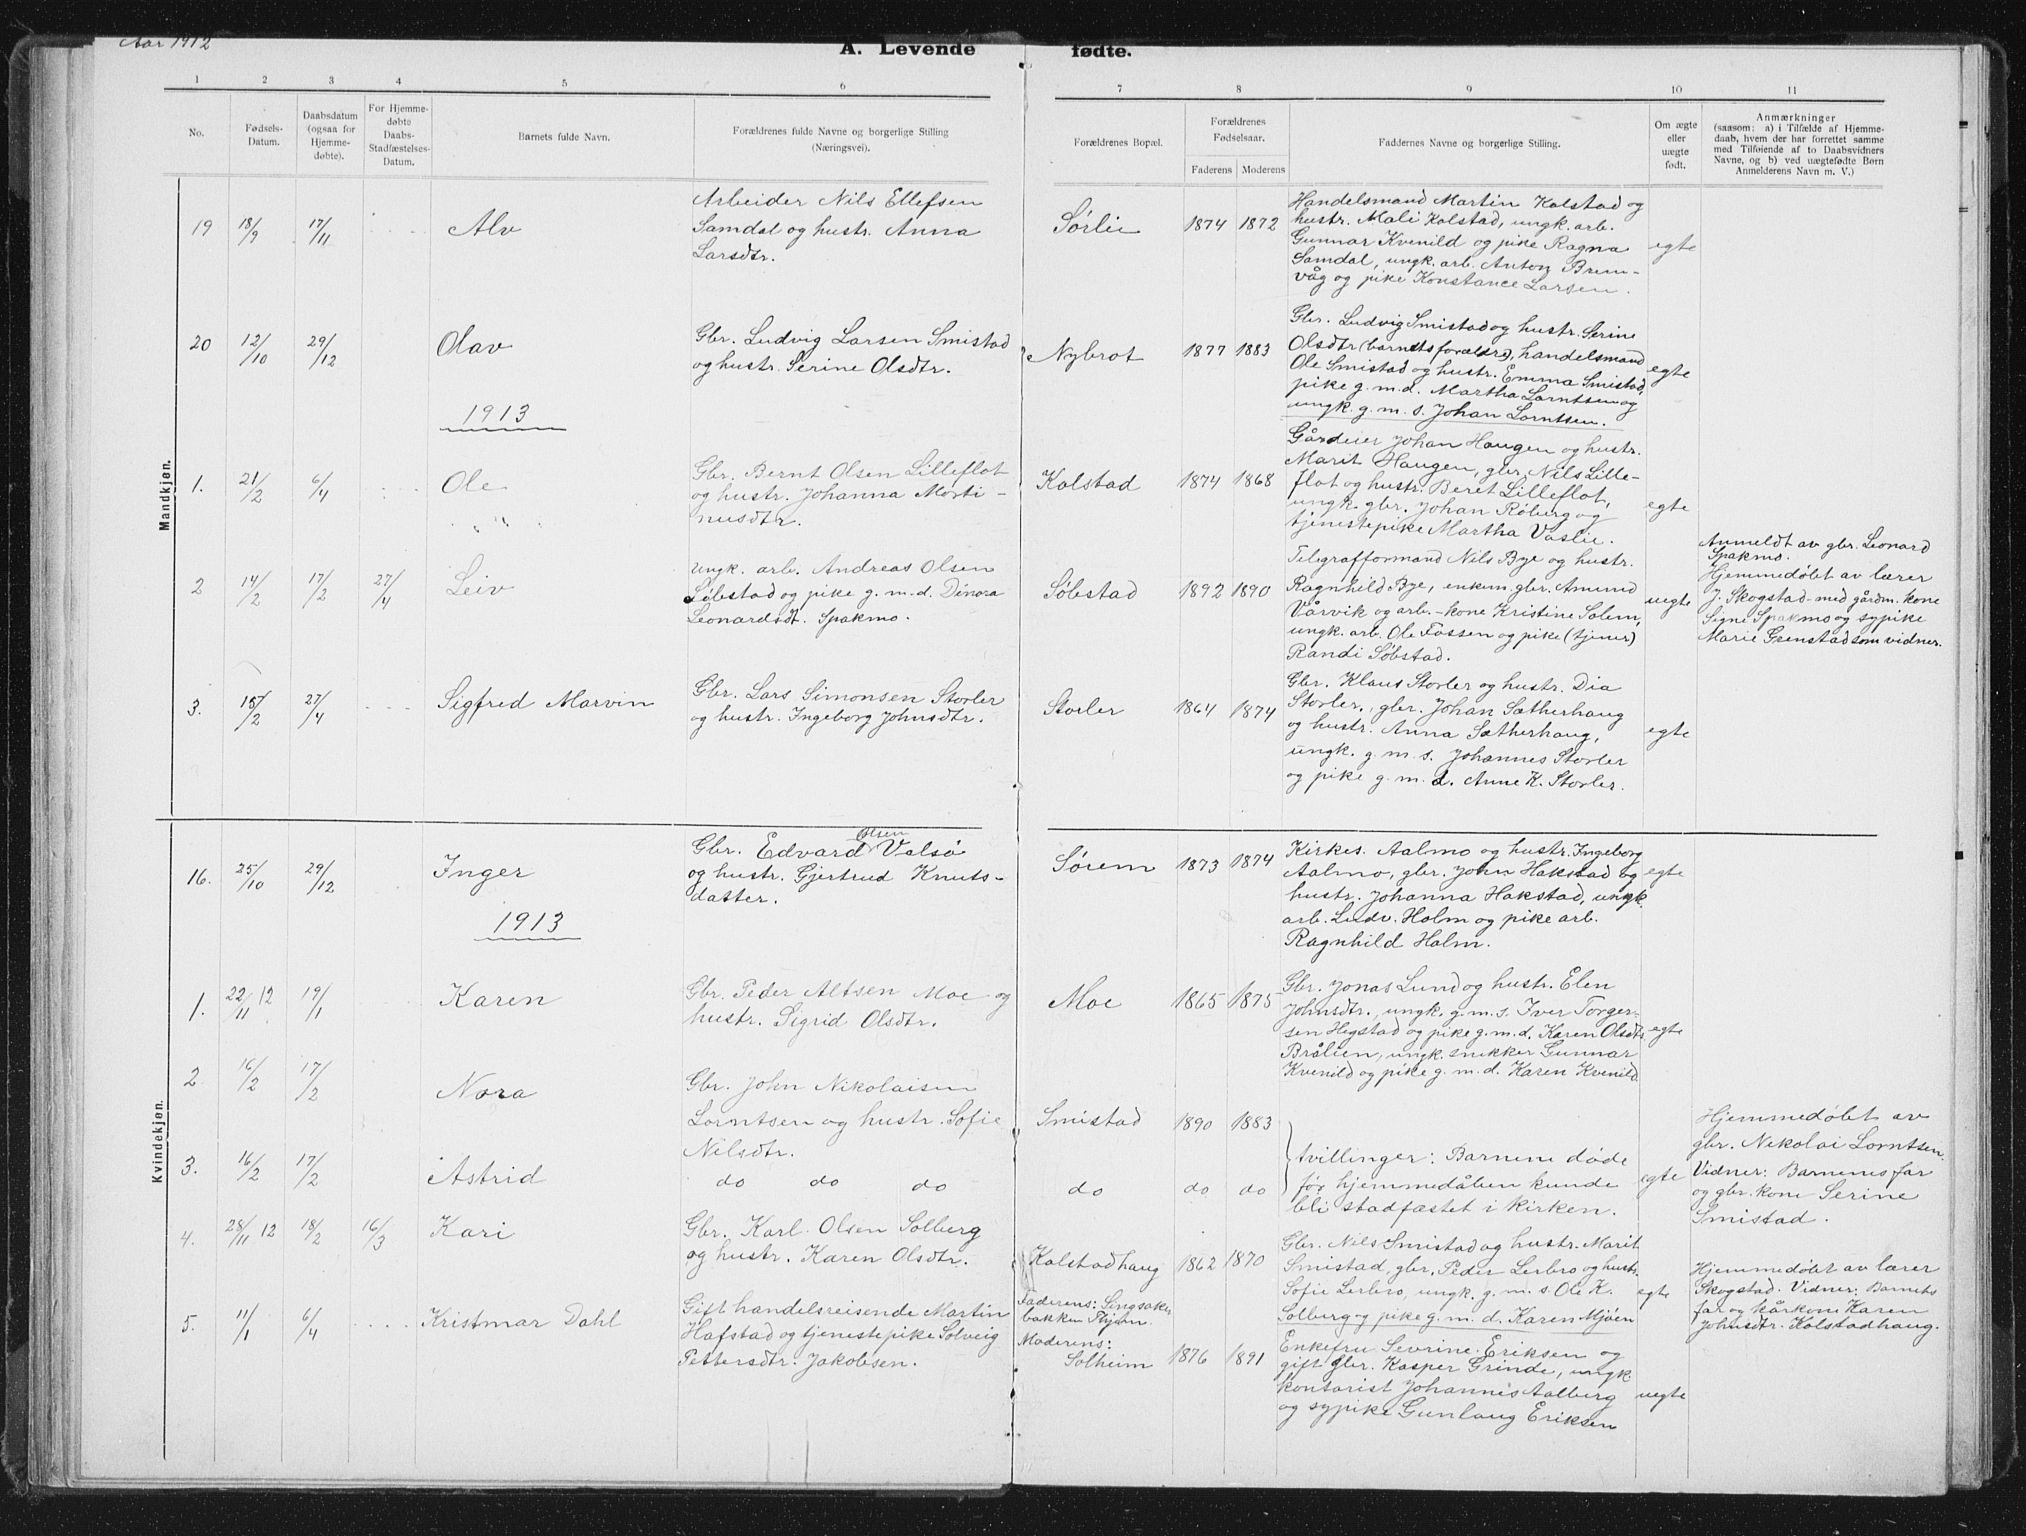 Aar 1912
A. Levende fødte.
1 2 3 4 5 6 7 8 9 10 11
No.
Fødsels-
Datum.
Daabsdatum
(ogsaa for
Hjemme-
døbte).
For Hjemme-
døbte
Daabs-
Stadfæstelses-
Datum.
Barnets fulde Navn.
Forældrenes fulde Navne og borgerlige Stilling
(Næringsvei).
Forældrenes Bopæl.
Forældrenes
Fødselsaar.
Faderens Moderens
Faddernes Navne og borgerlige Stilling.
Om ægte
eller
uægte
født.
Anmærkninger
(saasom: a) i Tilfælde af Hjemme-
daab, hvem der har forrettet samme
med Tilføiende af to Daabsvidners
Navne, og b) ved uægtefødte Børn
Anmelderens Navn m. V.)
Mandkjøn.
19 18/9 17/11 Alv
Arbeider Nils Ellefsen
Samdal og hustr. Anna
Larsdtr.
Sørlii 1874 1872
Handelsmand Martin Kolstad og
hustr. Mali Kolstad, ungk. arb.
Gunnar Kvenild og pike Ragna
Samdal, ungk. arb. Anton Brem-
våg og pike Konstance Larsen.
egte
20 12/10 29/12 Olav
Gbr. Ludvig Larsen Smistad
og hustr. Serine Olsdtr.
Nybrot 1877 1883
Gbr. Ludvig Smistad og hustr. Serine
Olsdtr (barnets forældre), handelsmand
Ole Smistad og hustr. Emma Smistad,
pike g. m. d. Martha Lorntsen og
ungk. g. m. s. Johan Lorntsen.
egte
1913
1. 21/2 6/4 Ole
Gbr. Bernt Olsen Lilleflot
og hustr. Johanna Morti-
nusdtr.
Kolstad 1874 1868
Gårdeier Johan Haugen og hustr.
Marit Haugen, gbr. Nils Lille-
flot og hustr. Beret Lilleflot,
ungk. gbr. Johan Røberg og
tjenestepike Martha Vaslie.
egte
2 14/2 17/2 27/4 Leiv
Ungk. arb. Andreas Olsen
Søbstad og pike g. m. d. Dinora
Leonardsdt. Spakmo.
Søbstad 1892 1890
Telegrafformand Nils Bye og hustr.
Ragnhild Bye, enkem. gbr. Amund
Vårvik og arb.-kone Kristine Solem,
ungk. arb. Ole Fossen og pike (tjener)
Randi Søbstad.
uegte
Anmeldt av gbr. Leonard
Spakmo.
Hjemmedøbt av lærer
J. Skogstad med gårdm. kone
Signe Spakmo og sypike
Marie Grenstad som vidner.
3. 15/2 27/4 Sigfred Marvin
Gbr. Lars Simonsen Storler
og hustr. Ingeborg Johnsdtr.
Storler 1864 1874
Gbr. Klaus Storler og hustr. Dia
Storler, gbr. Johan Sætherhaug
og hustr. Anna Sætherhaug,
ungk. g. m. s. Johannes Storler
og pike g. m. d. Anne K. Storler.
egte
Kvindekjøn.
16. 25/10 29/12 Inger
Gbr. Edvard Olsen Valsø
og hustr. Gjertrud Knuts-
datter.
Sørem 1873 1874
Kirkes. Aalmo og hustr. Ingeborg
Aalmo, gbr. John Hakstad og
hustr. Johanna Hakstad, ungk.
arb. Ludv. Holm og pike arb.
Ragnhild Holm.
egte
1913
1. 22/11 12 19/1 Karen
Gbr. Peder Altsen Moe og
hustr. Sigrid Olsdtr.
Moe 1865 1875
Gbr. Jonas Lund og hustr. Elen
Johnsdtr., ungk. g. m. s. Iver Torger-
sen Hegstad og pike g. m. d. Karen Olsdtr
Brålien, ungk. snikker Gunnar
Kvenild og pike g. m. d. Karen Kvenild.
egte
2. 16/2 17/2 Nora
Gbr. John Nikolaisen
Lorntsen og hustr. Sofie
Nilsdtr.
Smistad 1890 1883
3. 16/2 17/2 Astrid
do do do do do do
tvillinger: Barnene døde
før hjemmedåben kunde
bli stadfæstet i kirken.
egte
Hjemmedøbt av
gbr. Nikolai Lorntsen.
Vidner: Barnenes far
og gbr. kone Serine
Smistad.
4. 28/11 12 18/2 16/3 Kari
Gbr. Karl Olsen Solberg
og hustr. Karen Olsdtr.
Kolstadhaug 1862 1870
Gbr. Nils Smistad og hustr. Marit
Smistad, gbr. Peder Lerbro og hustr.
Sofie Lerbro, ungk. g. m. s. Ole K.
Solberg og pike g. m. d. Karen Mjøen
egte
Hjemmedøbt av lærer
Skogstad. Vidner: Barnets
far og kårkone Karen
Johnsdtr. Kolstadhaug.
5. 11/1 6/4 Kristmar Dahl
Gift handelsreisende Martin
Hafstad og tjenestepike Solveig
Pettersdtr. Jakobsen.
Faderens: Singsaker
bakken Thjem
Moderens:
Solheim 1876 1891
Enkefru Sevrine Eriksen og
gift gbr. Kasper Grinde, ungk
kontorist Johannes Aalberg
og sypike Gunlaug Eriksen
uegte